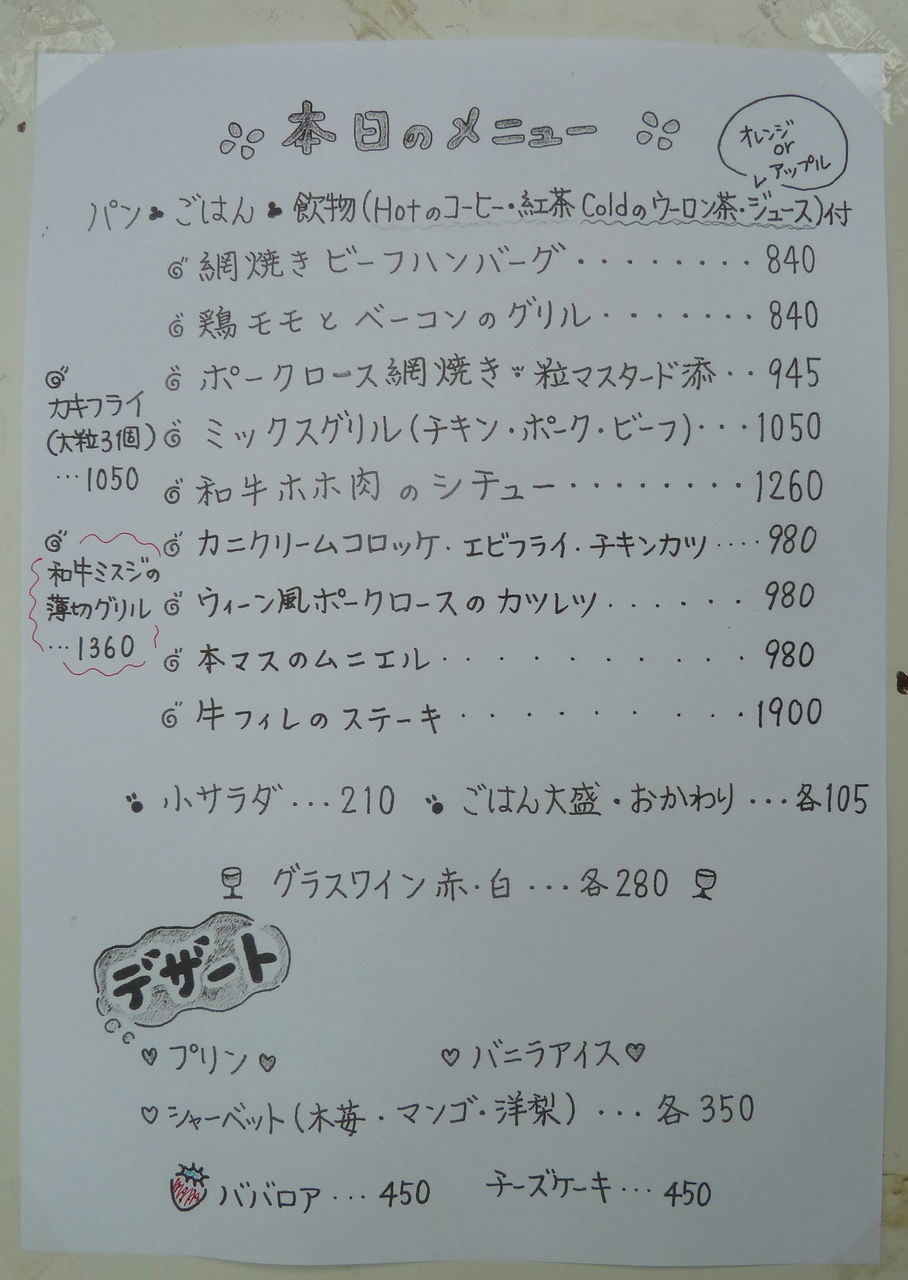 本日のメニュー
オレンジ
or
アップル
パン・ごはん・飲物(Hotのコーヒー・紅茶 Coldのウーロン茶・ジュース)付
網焼きビーフハンバーグ・・・・・・・・840
鶏モモとベーコンのグリル・・・・・・・840
ポークロース網焼き・粒マスタード添・・945
ミックスグリル(チキン・ポーク・ビーフ)・・・1050
和牛ホホ肉のシチュー・・・・・・・・1260
カニクリームコロッケ・エビフライ・チキンカツ・・・・980
ウィーン風ポークロースのカツレツ・・・・・・980
本マスのムニエル・・・・・・・・・・980
牛フィレのステーキ・・・・・・・・・1900
カキフライ
(大粒3個)
…1050
和牛ミスジの
薄切グリル
…1360
小サラダ…210 ごはん大盛・おかわり…各105
グラスワイン赤・白…各280
デザート
プリン バニラアイス
シャーベット(木苺・マンゴ・洋梨)…各350
ババロア…450 チーズケーキ…450